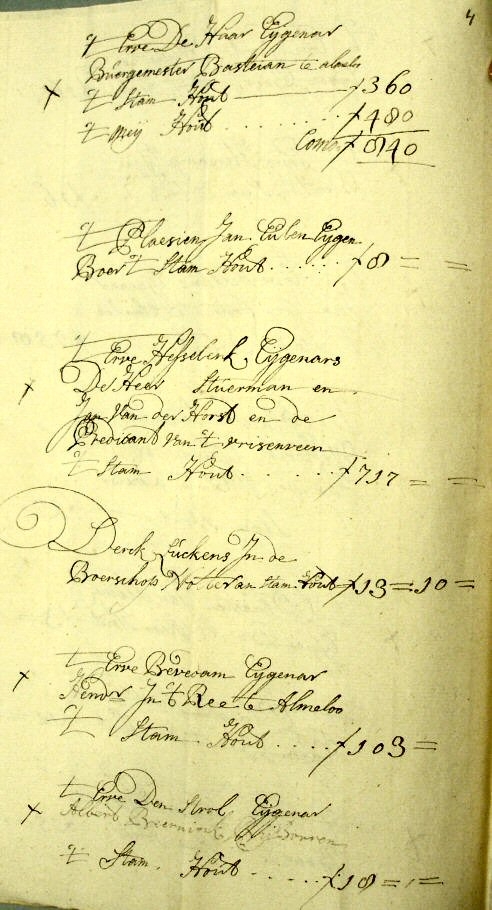 4
't Erve De Haar Eijgenar
Buergemester Basteian te
't Stam Hout ƒ 360
't Meij Hout ƒ 480
Comt ƒ 840
't Plaesien Jan Eulen Eijgen
Boer 't Stam Hout ƒ 8 = =
't Erve Hesselink, Eijgenars
De Heer Stuerman en
Jan Van der Horst en de
Predicant Van 't vrisenveen
't Stam Hout ƒ 717 = =
Derck Luckens In de
Boerschot Notter an Stam Hout ƒ 13 = 10 =
't Erve Eijgenar
Hendr In 't Ree te Almeloo
't Stam Hout ƒ 103 =
't Erve Den Strol, Eijgenar
Albert
't Stam Hout ƒ 18 = , =